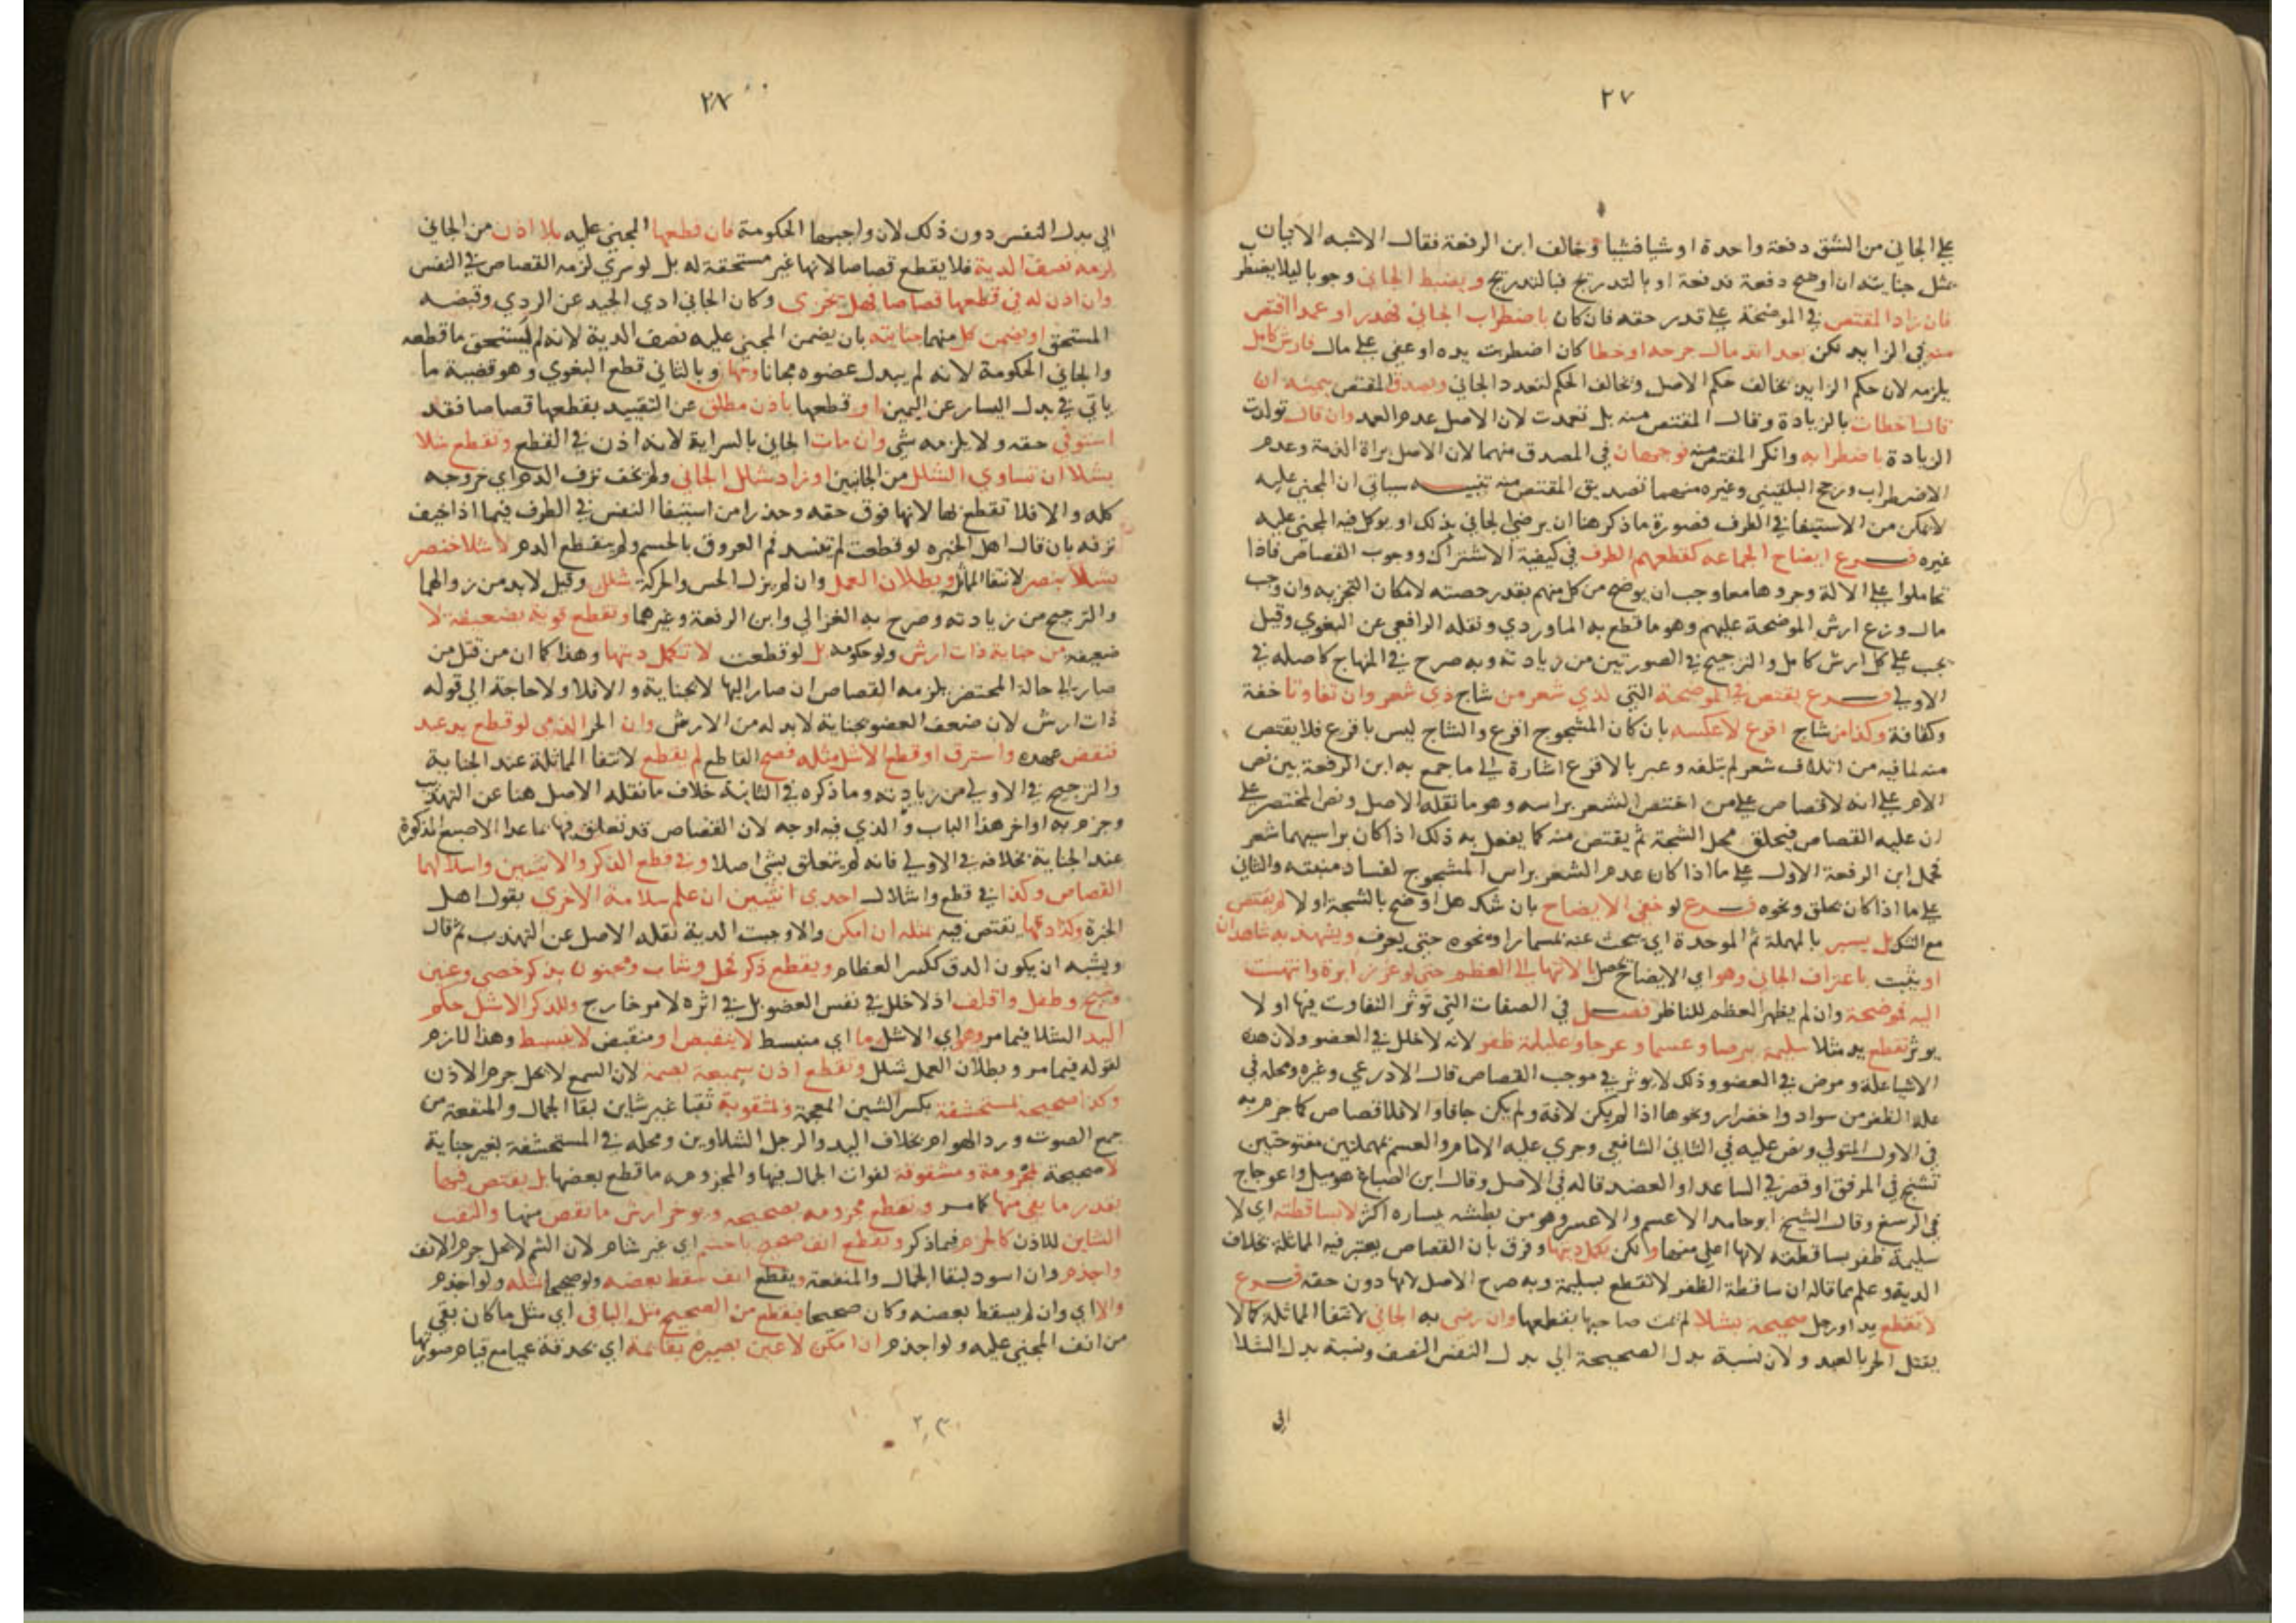 ٢٧
على الجاني من الشق دفعة واحدة او شيا فشيا وخالف ابن الرفعة فقال الاشبه الاتيان
بمثل جنايته ان اوضح دفعة فدفعة او بالتدريج فبالتدريج ويضبط الجاني وجوبا ليلا يضطرب
فان زاد المقتص في الموضحة على قدر حقه فان كان باضطراب الجاني فهدر او عمدا اقتص
منه في الزايد لكن بعد اندمال جرحه او خطا كان اضطربت يده او عفي على مال فارش كامل
يلزمه لان حكم الزايد يخالف حكم الاصل وتخالف الحكم كتعدد الجاني ويصدق المقتص بيمينه ان
قال اخطات بالزيادة وقال المقتص منه بل تعمدت لان الاصل عدم العمد وان قال تولدت
الزيادة باضطرابه وانكر المقتص منه فوجهان في المصدق منهما لان الاصل براة الذمة وعدم
الاضطراب ورجح البلقيني وغيره منهما تصديق المقتص منه تنبيه سياتي ان المجني عليه
لا يمكن من الاستيفا في الطرف فصورة ما ذكر هنا ان يرضى الجاني بذلك او يوكل فيه المجني عليه
غيره فرع ايضاح الجماعه كقطعهم الطرف في كيفية الاشتراك ووجوب القصاص فاذا
تحاملوا على الالة وجروها معا وجب ان يوضح من كل منهم بقدر حصته لامكان التجزيه وان وجب
مال وزع ارش الموضحة عليهم وهو ما قطع به الماوردي ونقله الرافعي عن البغوي وقيل
يجب على كل ارش كامل والترجيح في الصورتين من زيادته وبه صرح في المنهاج كاصله في
الاولى فرع يقتص في الموضحة التي لذي شعر من شاج ذي شعر وان تفاوتا خفة
وكثافة وكذا من شاج اقرع لا عكسه بان كان المشجوج اقرع والشاج ليس باقرع فلا يقتص
منه لما فيه من اتلاف شعر لم يتلفه وعبر بالاقرع اشارة الى ما جمع به ابن الرفعة بين نص
الام على انه لا قصاص على من اختص الشعر براسه وهو ما نقله الاصل ونص المختصر على
ان عليه القصاص فيحلق محل الشجة ثم يقتص منه كما يفعل به ذلك اذا كان براسيهما شعر
فحمل ابن الرفعة الاول على ما اذا كان عدم الشعر براس المشجوج لفساد منبته والثاني
على ما اذا كان بحلق ونحوه فرع لو خفي الايضاح بان شك هل اوضح بالشجة او لا لم يقتص
مع الشك بل يسبر بالمهملة ثم الموحدة اي يبحث عنه بمسمار او نحوه حتى يعرف ويشهد به شاهدان
او يثبت باعتراف الجاني وهو اي الايضاح يحصل بالانتها الى العظم حتى لو غرز ابرة وانتهت
اليه فموضحة وان لم يظهر العظم للناظر فصل في الصفات التي توثر التفاوت فيها او لا
يوثر تقطع يد مثلا سليمة ببرصا وعسما وعرجا وعليلة ظفر لانه لا خلل في العضو ولان هذه
الاشيا علة ومرض في العضو وذلك لا يوثر في موجب القصاص قال الاذرعي وغيره ومحله في
علة الظفر من سواد واخضرار ونحوها اذا لم يكن لافة ولم يكن جافا والا فلا قصاص كما جزم به
في الاول المتولي ونص عليه في الثاني الشافعي وجرى عليه الامام والعسم بمهملتين مفتوحتين
تشنج في المرفق او قصر في الساعد او العضد قاله في الاصل وقال ابن الصباغ هو ميل واعوجاج
في الرسغ وقال الشيخ ابو حامد الاعسم والاعسر وهو من بطشه بيساره اكثر لا بساقطته اي لا
سليمة ظفر بساقطته لانها اعلى منها ولكن تكمل ديتها وفرق بان القصاص يعتبر فيه المماثلة بخلاف
الدية وعلم مما قاله ان ساقطة الظفر لا تقطع بسليمة وبه صرح الاصل لانها دون حقه فرع
لا تقطع يد او رجل صحيحة بشلا لم يمت صاحبها بقطعها وان رضي به الجاني لانتفا المماثلة كما لا
يقتل الحر بالعبد ولان نسبة بدل الصحيحة الى بدل النفس النصف ونسبة بدل الشلا
الى
٢٨
الى بدل النفس دون ذلك لان واجبها الحكومة فان قطعها المجني عليه بلا اذن من الجاني
لزمه نصف الدية فلا يقطع قصاصا لانها غير مستحقة له بل لو سرى لزمه القصاص في النفس
وان اذن له في قطعها قصاصا فهل تجزي وكان الجاني ادى الجيد عن الردي وقبضه
المستحق او يضمن كل منهما جنايته بان يضمن المجني عليه نصف الدية لانه لم يستحق ما قطعه
والجاني الحكومة لانه لم يبدل عضوه مجانا وجهان وبالثاني قطع البغوي وهو قضية ما
ياتي في بدل اليسار عن اليمين او قطعها باذن مطلق عن التقييد بقطعها قصاصا فقد
استوفى حقه ولا يلزمه شي وان مات الجاني بالسراية لانه اذن في القطع وتقطع شلا
بشلا ان تساوى الشلل من الجانبين او زاد شلل الجاني ولم يخف نزف الدم اي خروجه
كله والا فلا تقطع بها لانها فوق حقه وحذرا من استيفا النفس في الطرف فيما اذا خيف
نزفه بان قال اهل الخبره لو قطعت لم تنسد فم العروق بالحسم ولم ينقطع الدم لا شلا خنصر
بشلا بنصر لانتفا المماثلة وبطلان العمل وان لم يزل الحس والحركة شلل وقيل لا بد من زوالهما
والترجيح من زيادته وصرح به الغزالي وابن الرفعة وغيرهما وتقطع قوية بضعيفة لا
ضعيفه من جناية ذات ارش ولو حكومه بل لو قطعت لا تكمل ديتها وهذا كما ان من قتل من
صار الى حالة المحتضر يلزمه القصاص ان صار اليها لا بجناية والا فلا ولا حاجة الى قوله
ذات ارش لان ضعف العضو بجناية لا بد له من الارش وان الحر الذمي لو قطع يد عبد
فنقض عهده واسترق او قطع الاشل مثله فصح القاطع لم يقطع لانتفا المماثلة عند الجناية
والترجيح في الاولى من زيادته وما ذكره في الثانية خلاف ما نقله الاصل هنا عن التهذيب
وجزم به اواخر هذا الباب والذي فيه اوجه لان القصاص قد تعلق فيها بما عدا الاصبع المذكورة
عند الجناية بخلافه في الاولى فانه لم يتعلق بشي اصلا وفي قطع الذكر والانثيين واشلالهما
القصاص وكذا في قطع واشلال احدى انثيين ان علم سلامة الاخرى بقول اهل
الخبرة وكذا دقهما يقتص فيه بمثله ان امكن والا وجبت الدية نقله الاصل عن التهذيب ثم قال
ويشبه ان يكون الدق ككسر العظام ويقطع ذكر فحل وشاب ومختون بذكر خصي وعنين
وشيخ وطفل واقلف اذ لا خلل في نفس العضو بل في اثره لامر خارج وللذكر الاشل حكم
اليد الشلا فيما مر وهو اي الاشل ما اي منبسط لا ينقبض او منقبض لا ينبسط وهذا لازم
لقوله فيما مر وبطلان العمل شلل وتقطع اذن سميعة بصمة لان السمع لا يحل جرم الاذن
وكذا صحيحة لمستحشفة بكسر الشين المعجمة ولمثقوبة ثقبا غير شاين لبقا الجمال والمنفعة من
جمع الصوت ورد الهوام بخلاف اليد والرجل الشلاوين ومحله في المستحشفة بغير جناية
لا صحيحة لمخرومة ومشقوقة لفوات الجمال فيها والمخرومه ما قطع بعضها بل يقتص فيهما
بقدر ما بقي منها كما مر وتقطع مخرومه بصحيحه ويوخذ ارش ما نقص منها والثقب
الشاين للاذن كالخرم فيما ذكر وتقطع انف صحيح باخشم اي غير شام لان الشم لا يحل جرم الانف
واجذم وان اسود لبقا الجمال والمنفعة ويقطع انف سقط بعضه ولو صحيحا بمثله ولو اجذم
والا اي وان لم يسقط بعضه وكان صحيحا فيقطع من الصحيح مثل الباقي اي مثل ما كان بقي
من انف المجني عليه ولو اجذم ان امكن لا عين بصيرة بقائمة اي بحدقة عميا مع قيام صورتها